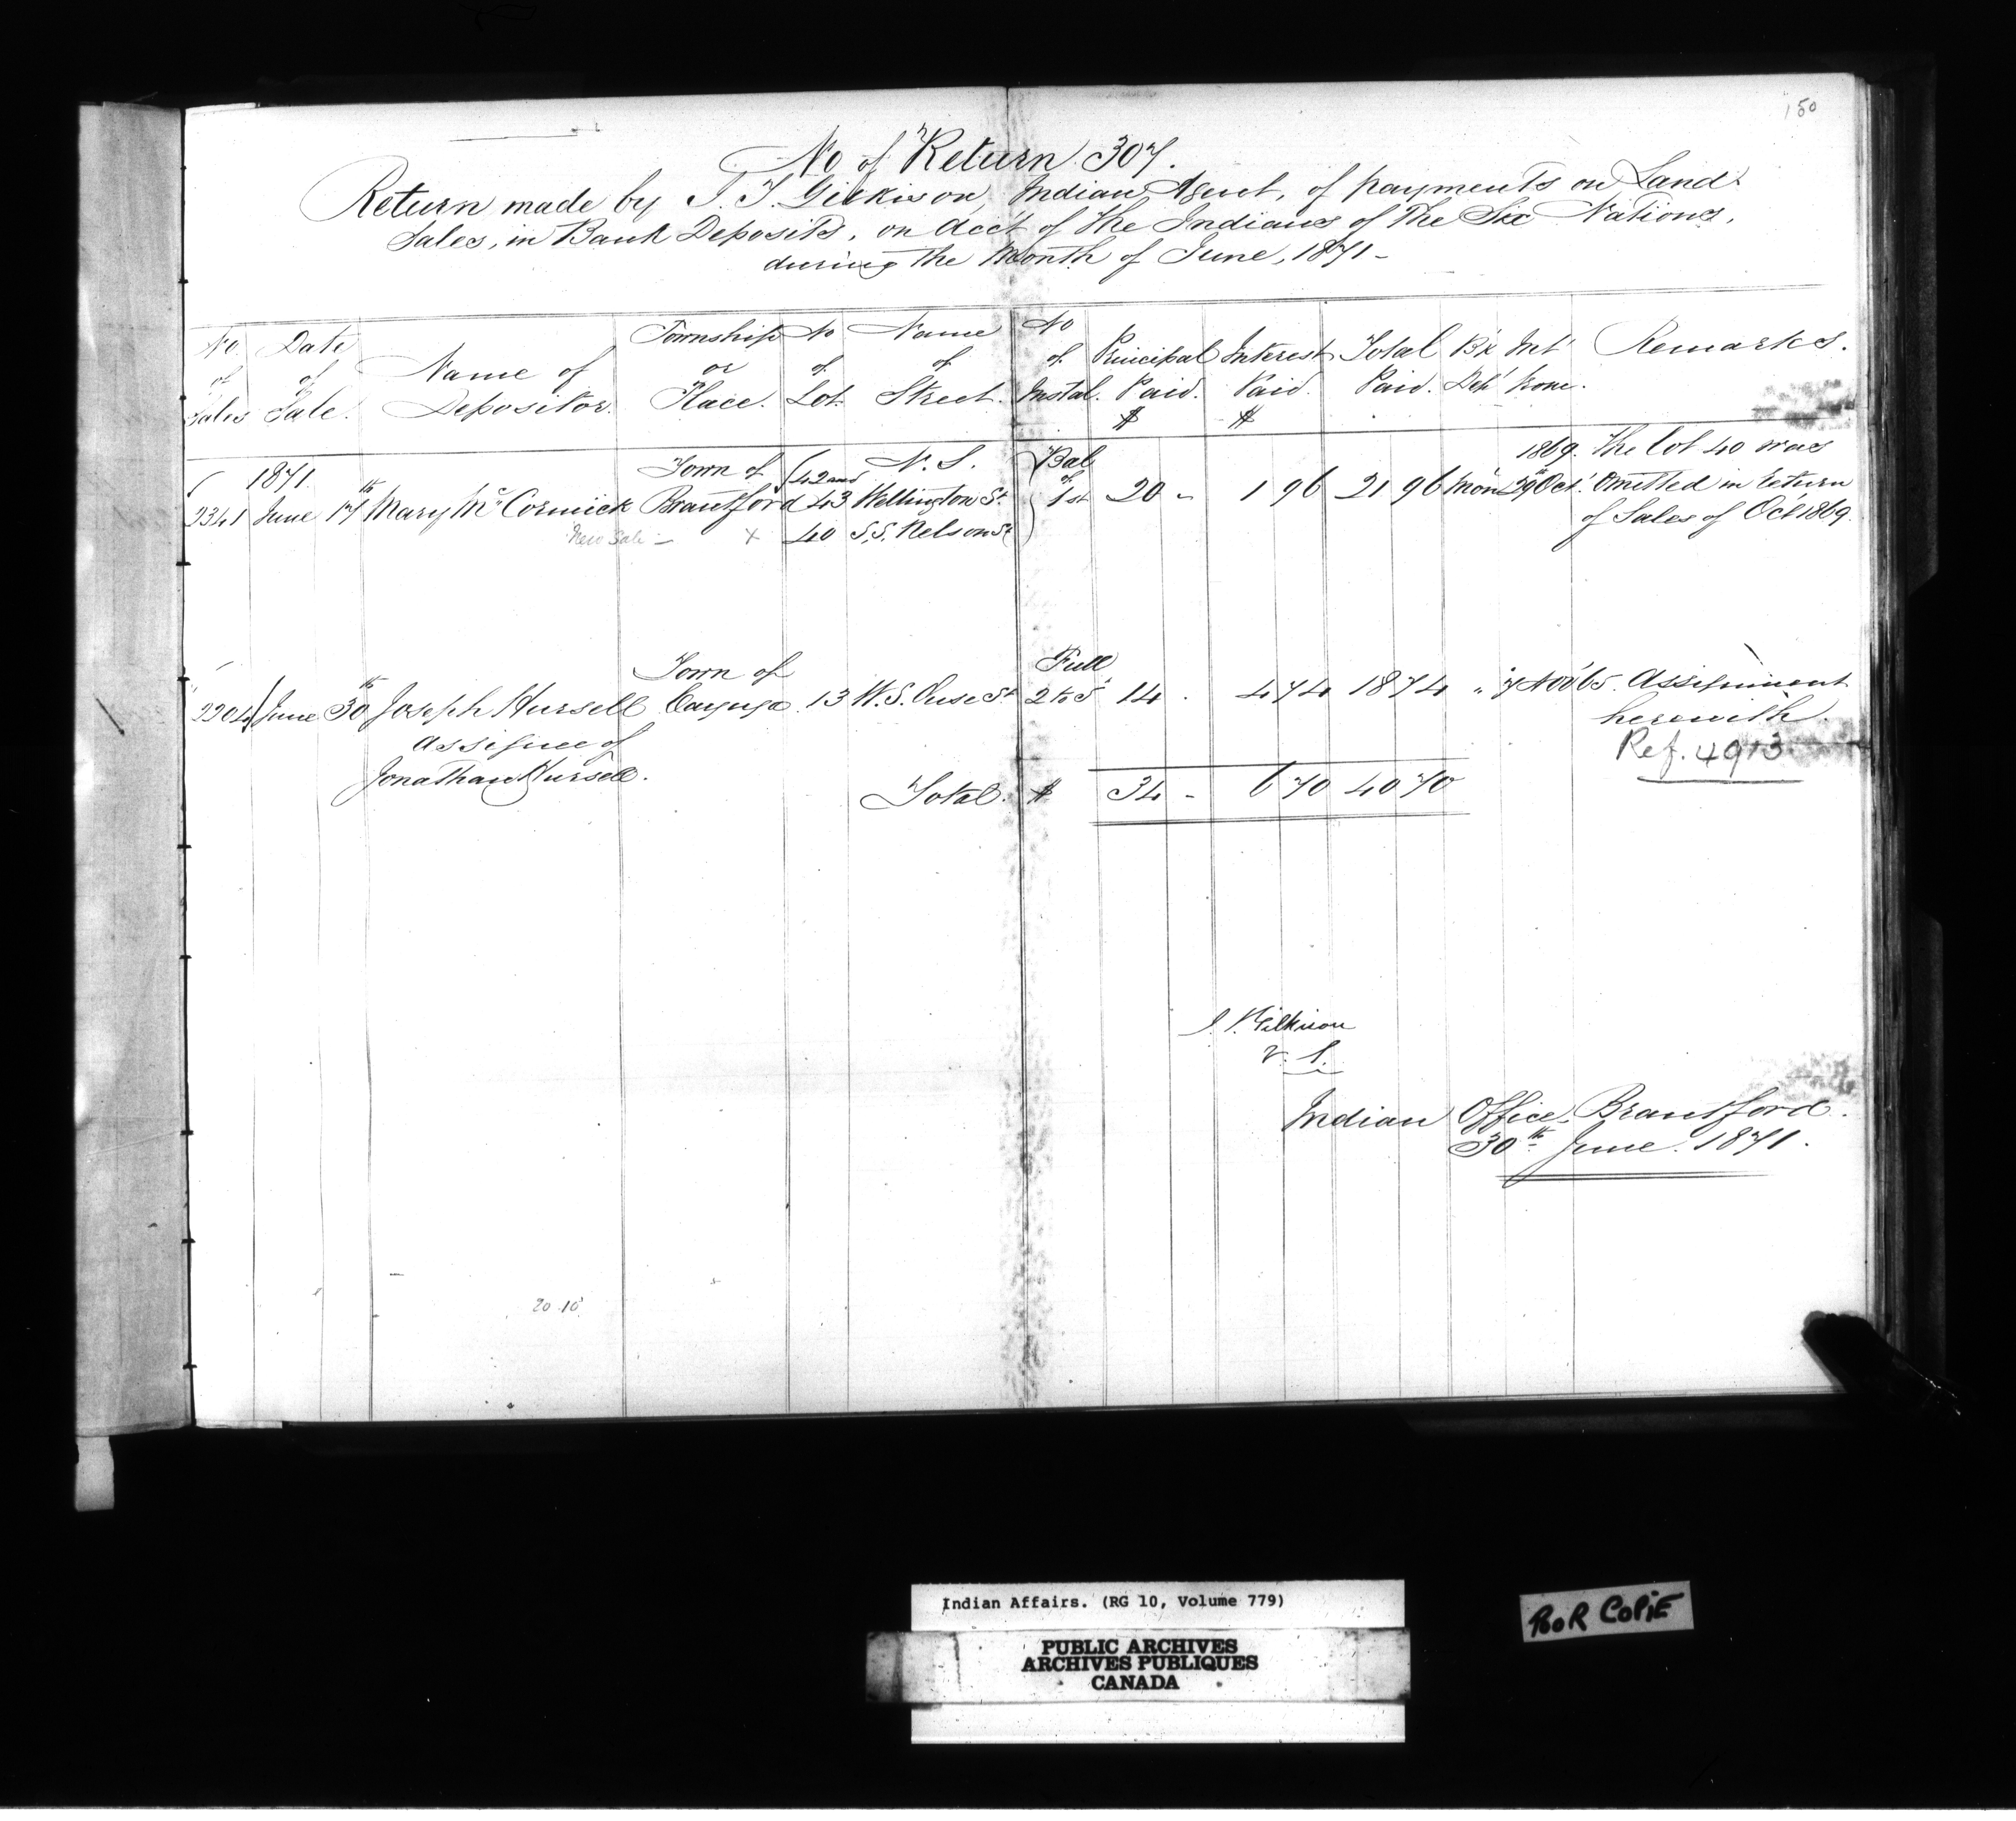 150
No of Return 307.
Return made by J. T. Gilkison, Indian Agent, of payments on Land
Sales, in Bank Deposits, on Acct of the Indians of the Six Nations,
during the Month of June, 1871-
No of Sales | Date of Sale. | Name of Depositor. | Township or Place. | No of Lot. | Name of Street. | No of Instal. | Principal Paid. $ | Interest Paid. $ | Total Paid. | Bk Dept | Int from. | Remarks.
1871. Town of 42 and N. S. Bal of 1869. The lot 40 was
2341 June 17th Mary McCormick Brantford 43 Wellington St 1st 20 - 1 96 21 96 Mon 29th Oct. Omitted in return
New Sale - x 40 S.S. Nelson St of Sales of Oct 1869.
Town of Full
2204 June 30th Joseph Hursell Cayuga 13 W.S. Ouse St 2 to 5 14 . 4 74 18 74 " 7 Assignment
Assignee of herewith.
Jonathan Hursell. Ref. 4913
Total. $ 34 - 6 70 40 70
J. T. Gilkison
V. S.
Indian Office, Brantford.
30th June. 1871.
20 10
Indian Affairs. (RG 10, Volume 779)
PUBLIC ARCHIVES
ARCHIVES PUBLIQUES
CANADA
POOR COPIE